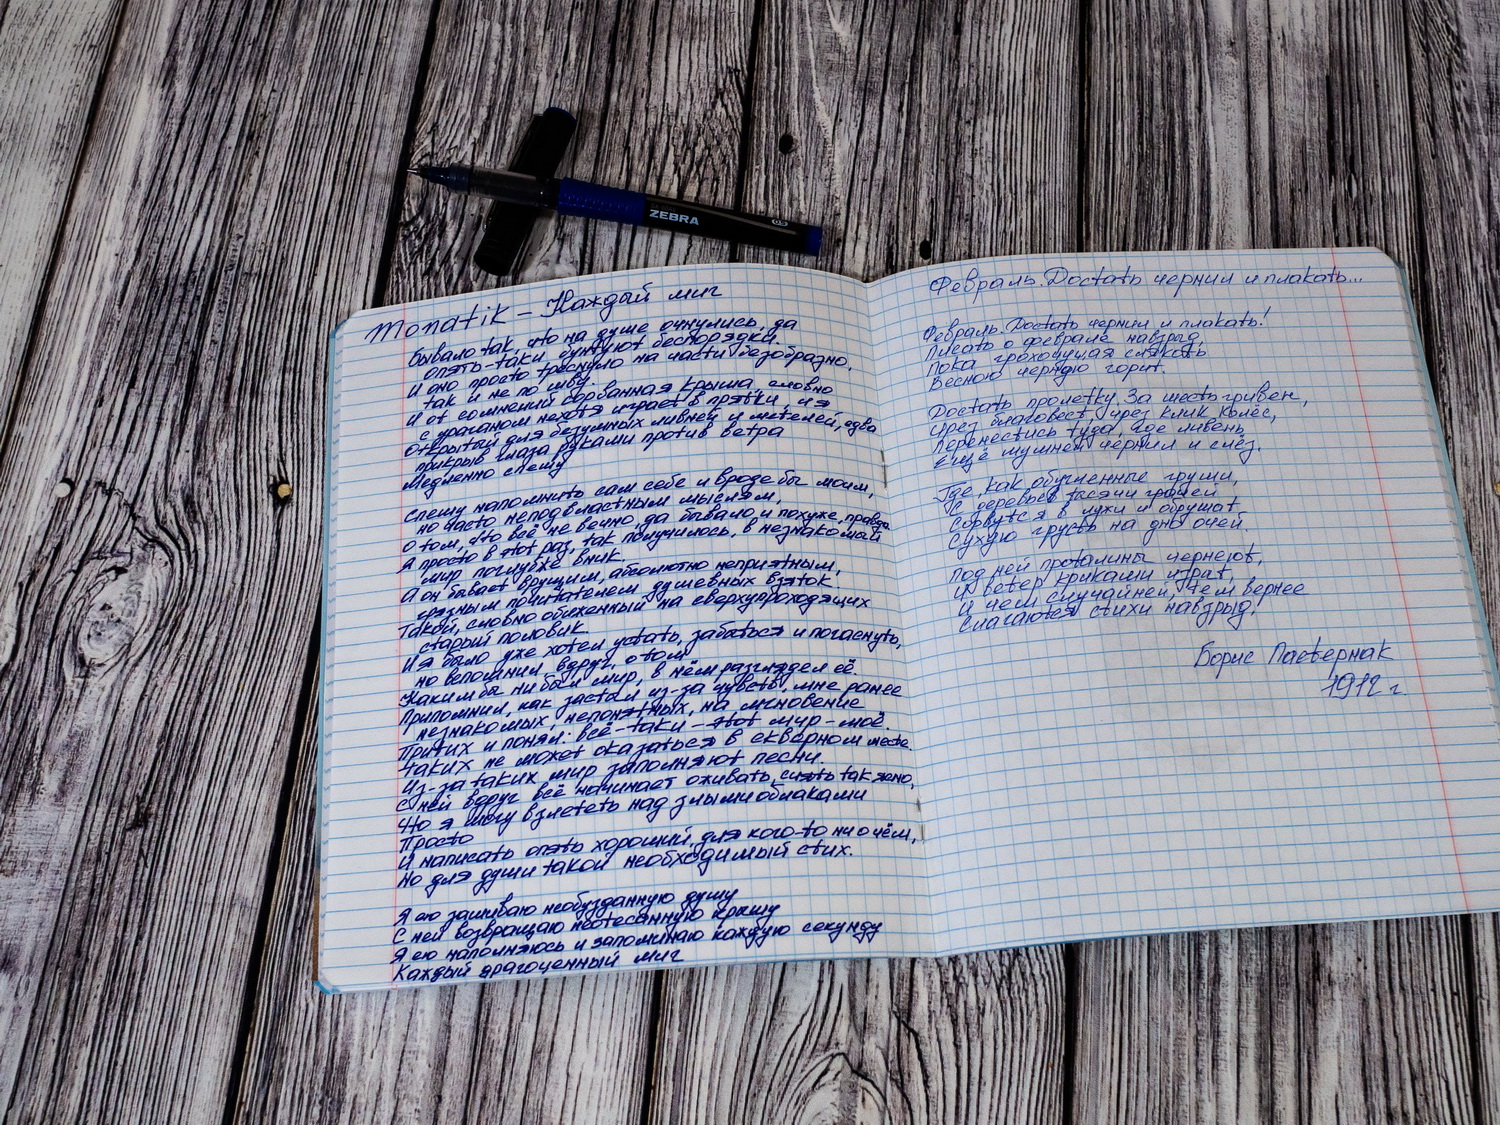 ZEBRA
Monatik – Каждый миг
Бывало так, что на душе очнулись, да
опять-таки бунтуют беспорядки.
И оно просто треснуло на части безобразно,
так и не по шву.
И от сомнений сорванная крыша, словно
с ураганом нехотя играет в прятки, и я
Открытый для безумных ливней и метелей, едва
прикрыв глаза руками против ветра
Медленно спешу
Спешу напомнить сам себе и вроде бы моим,
но часто неподвластным мыслям,
О том, что всё не вечно, да бывало и похуже, правда
Я просто в этот раз, так получилось, в незнакомый
мир поглубже вник.
А он бывает врущим, абсолютно неприятным,
грязным почитателем душевных взяток
Такой, словно обиженный на сверхупроходящих
старый половик
И я было уже хотел устать, забаться и погаснуть,
но вспомнил вдруг, о том
Каким бы ни был мир, в нём разглядел её
Припомнил, как застал из-за чувств, мне ранее
незнакомых, непонятных, на мгновение
Притих и понял: всё-таки – этот мир – моё.
Таких не может оказаться в скверном месте.
Из-за таких мир заполняют песни.
С ней вдруг всё начинает оживать, сиять так явно,
Что я могу взлететь над злыми облаками
Просто
И написать опять хороший, для кого-то ни о чём,
Но для души такой необходимый стих.
Я ею зашиваю необузданную душу
С ней возвращаю неотесанную крышу
Я ею наполняюсь и запоминаю каждую секунду
Каждый драгоценный миг
Февраль. Достать чернил и плакать...
Февраль. Достать чернил и плакать!
Писать о феврале навзрыд,
Пока грохочущая слякоть
Весною черною горит.
Достать пролетку. За шесть гривен,
Чрез благовест, чрез клик колёс,
Перенестись туда, где ливень
Ещё шумней чернил и слёз.
Где, как обугленные груши,
С деревьев тысячи грачей
Сорвутся в лужи и обрушат
Сухую грусть на дно очей.
Под ней проталины чернеют,
И ветер криками изрыт,
И чем случайней, тем вернее
Слагаются стихи навзрыд.
Борис Пастернак
1912 г.